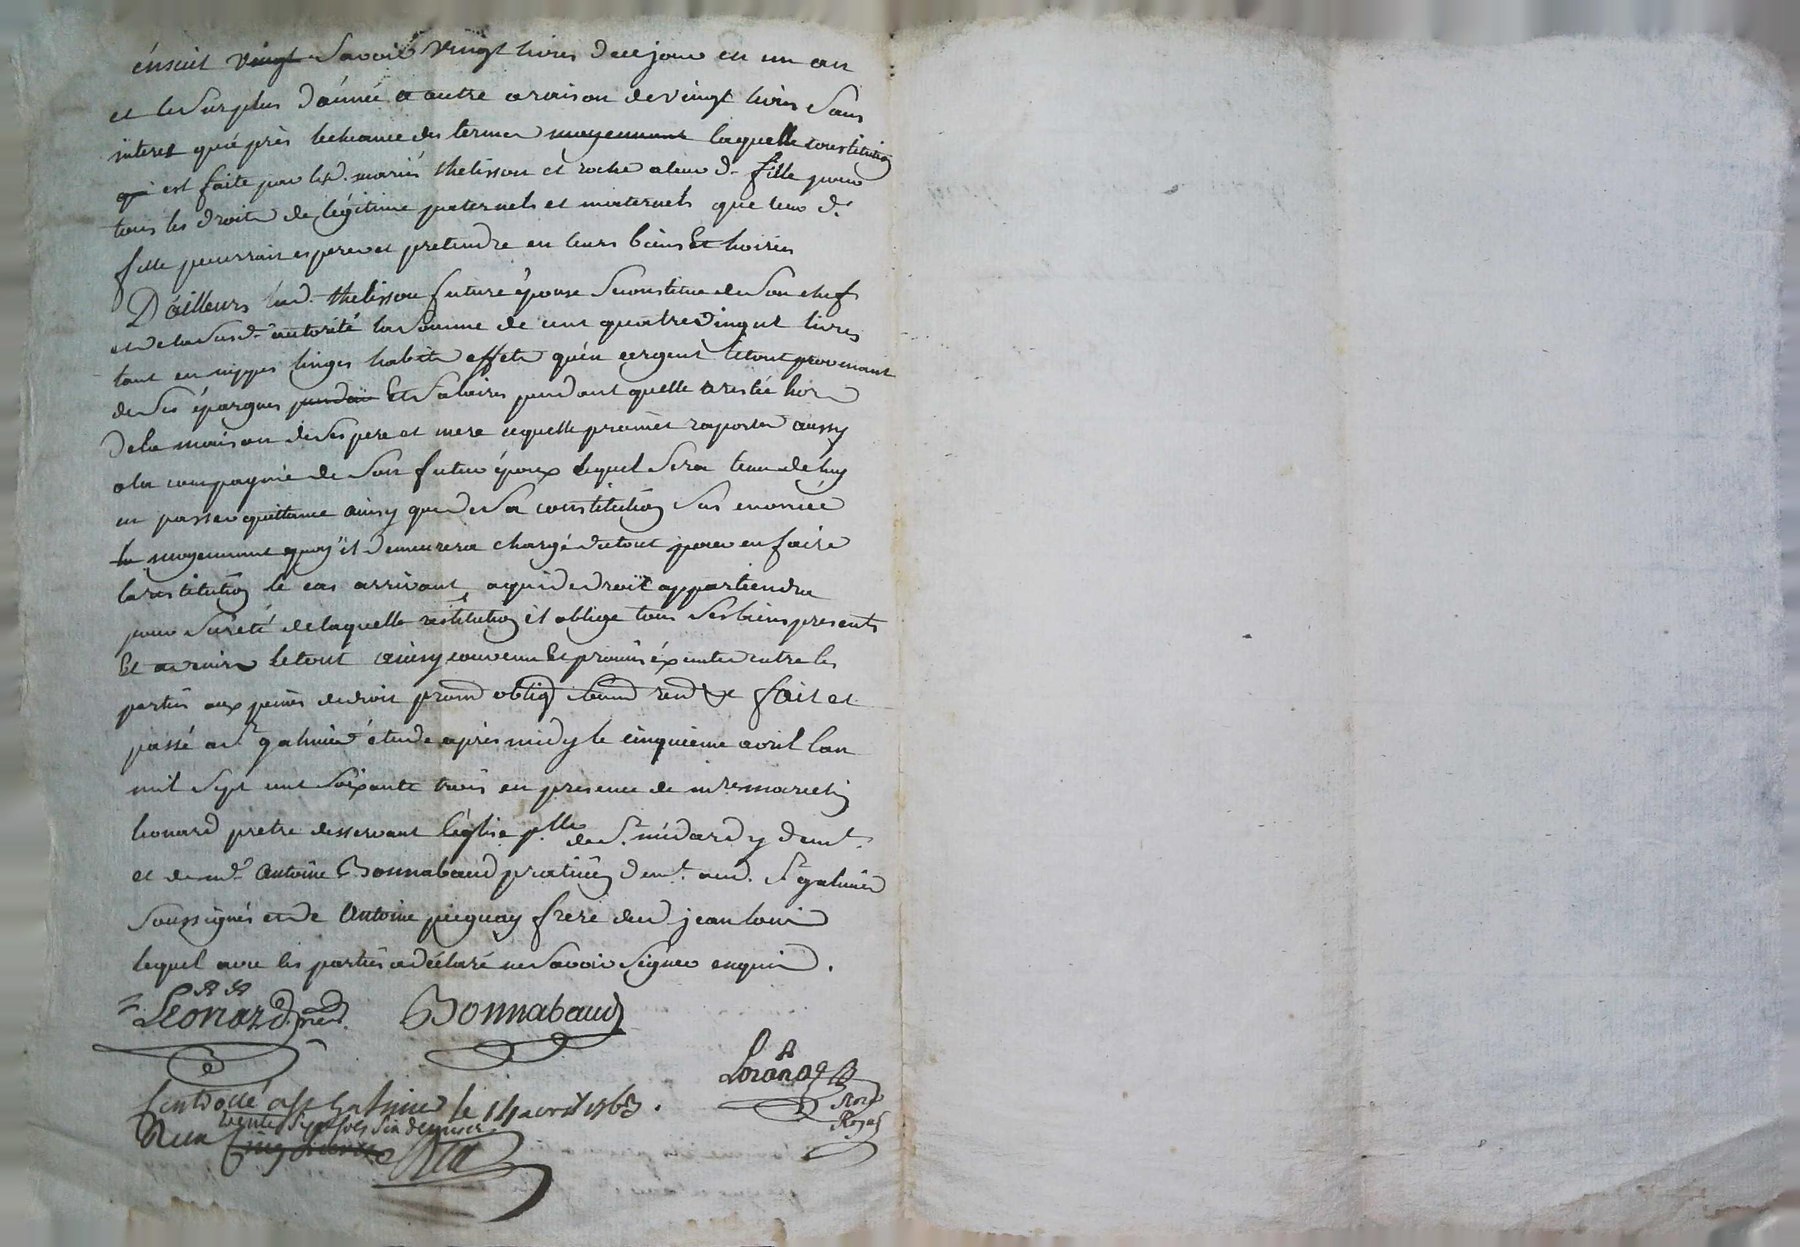 énsuit vingt savoir vingt livres dece jour en un an
et le surplus d'année a autre a raison de vingt livres sans
interest qu'apprès lecheance des termes moyennant laquelle constitution
qui est faite par lesd. mariés thelisson et roche a leur d. fille pour
tous les droits de légitime paternels et maternels que leur d.
fille pourroit esperer et pretendre en leurs biens Et hoiries
D'ailleurs lad. thelisson future épouse se constitue de son chef
et de la susd. autorité la somme de cent quatrevingt livres
tant en nippes linges habits effets qu'en argent le tout provenant
de ses épargnes pendan Et salaires pendant quelle a restée hors
de la maison de ses pere et mere lequelle promet raporter aussy
a la compagnie de son futur époux lequel sera tenu de luy
en passer quittance ainsy que de sa constitution sus enoncée
la moyennant quoy il demeurera chargé du tout pour en faire
la restitution le cas arrivant a qui de droit appartiendra
pour sûreté de laquelle restitution il oblige tous ses biens presents
Et avenir le tout ainsy convenu Et promis éxecuter entre les
parties aux peines de droit prom oblig soum ren &c fait et
passé a St galmier étude après midy le cinquieme avril lan
mil sept cent soixante trois en presence de mre marcelin
leonard prêtre desservant l'église plle de St médard y demt.
et de md. Antoine Bonnabaud praticien demt. aud. St galmier
soussignés et de Antoine piequay frere dud jean louis
lequel avec les parties a déclaré ne savoir signer enquis.
Leonard prêtre Bonnabaud
Controlé a St Galmier le 14 avril 1763.
Reçu
trente sept sols six deniers